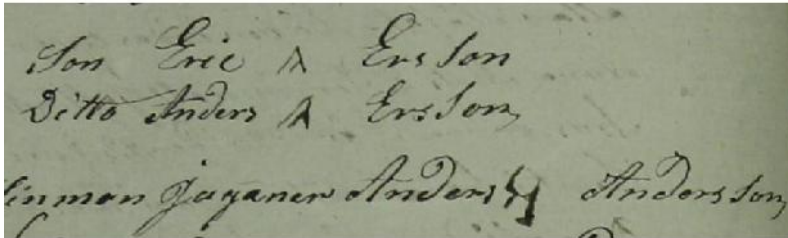 Son Eric Ersson
Ditto Anders Ersson
inman Anders Andersson